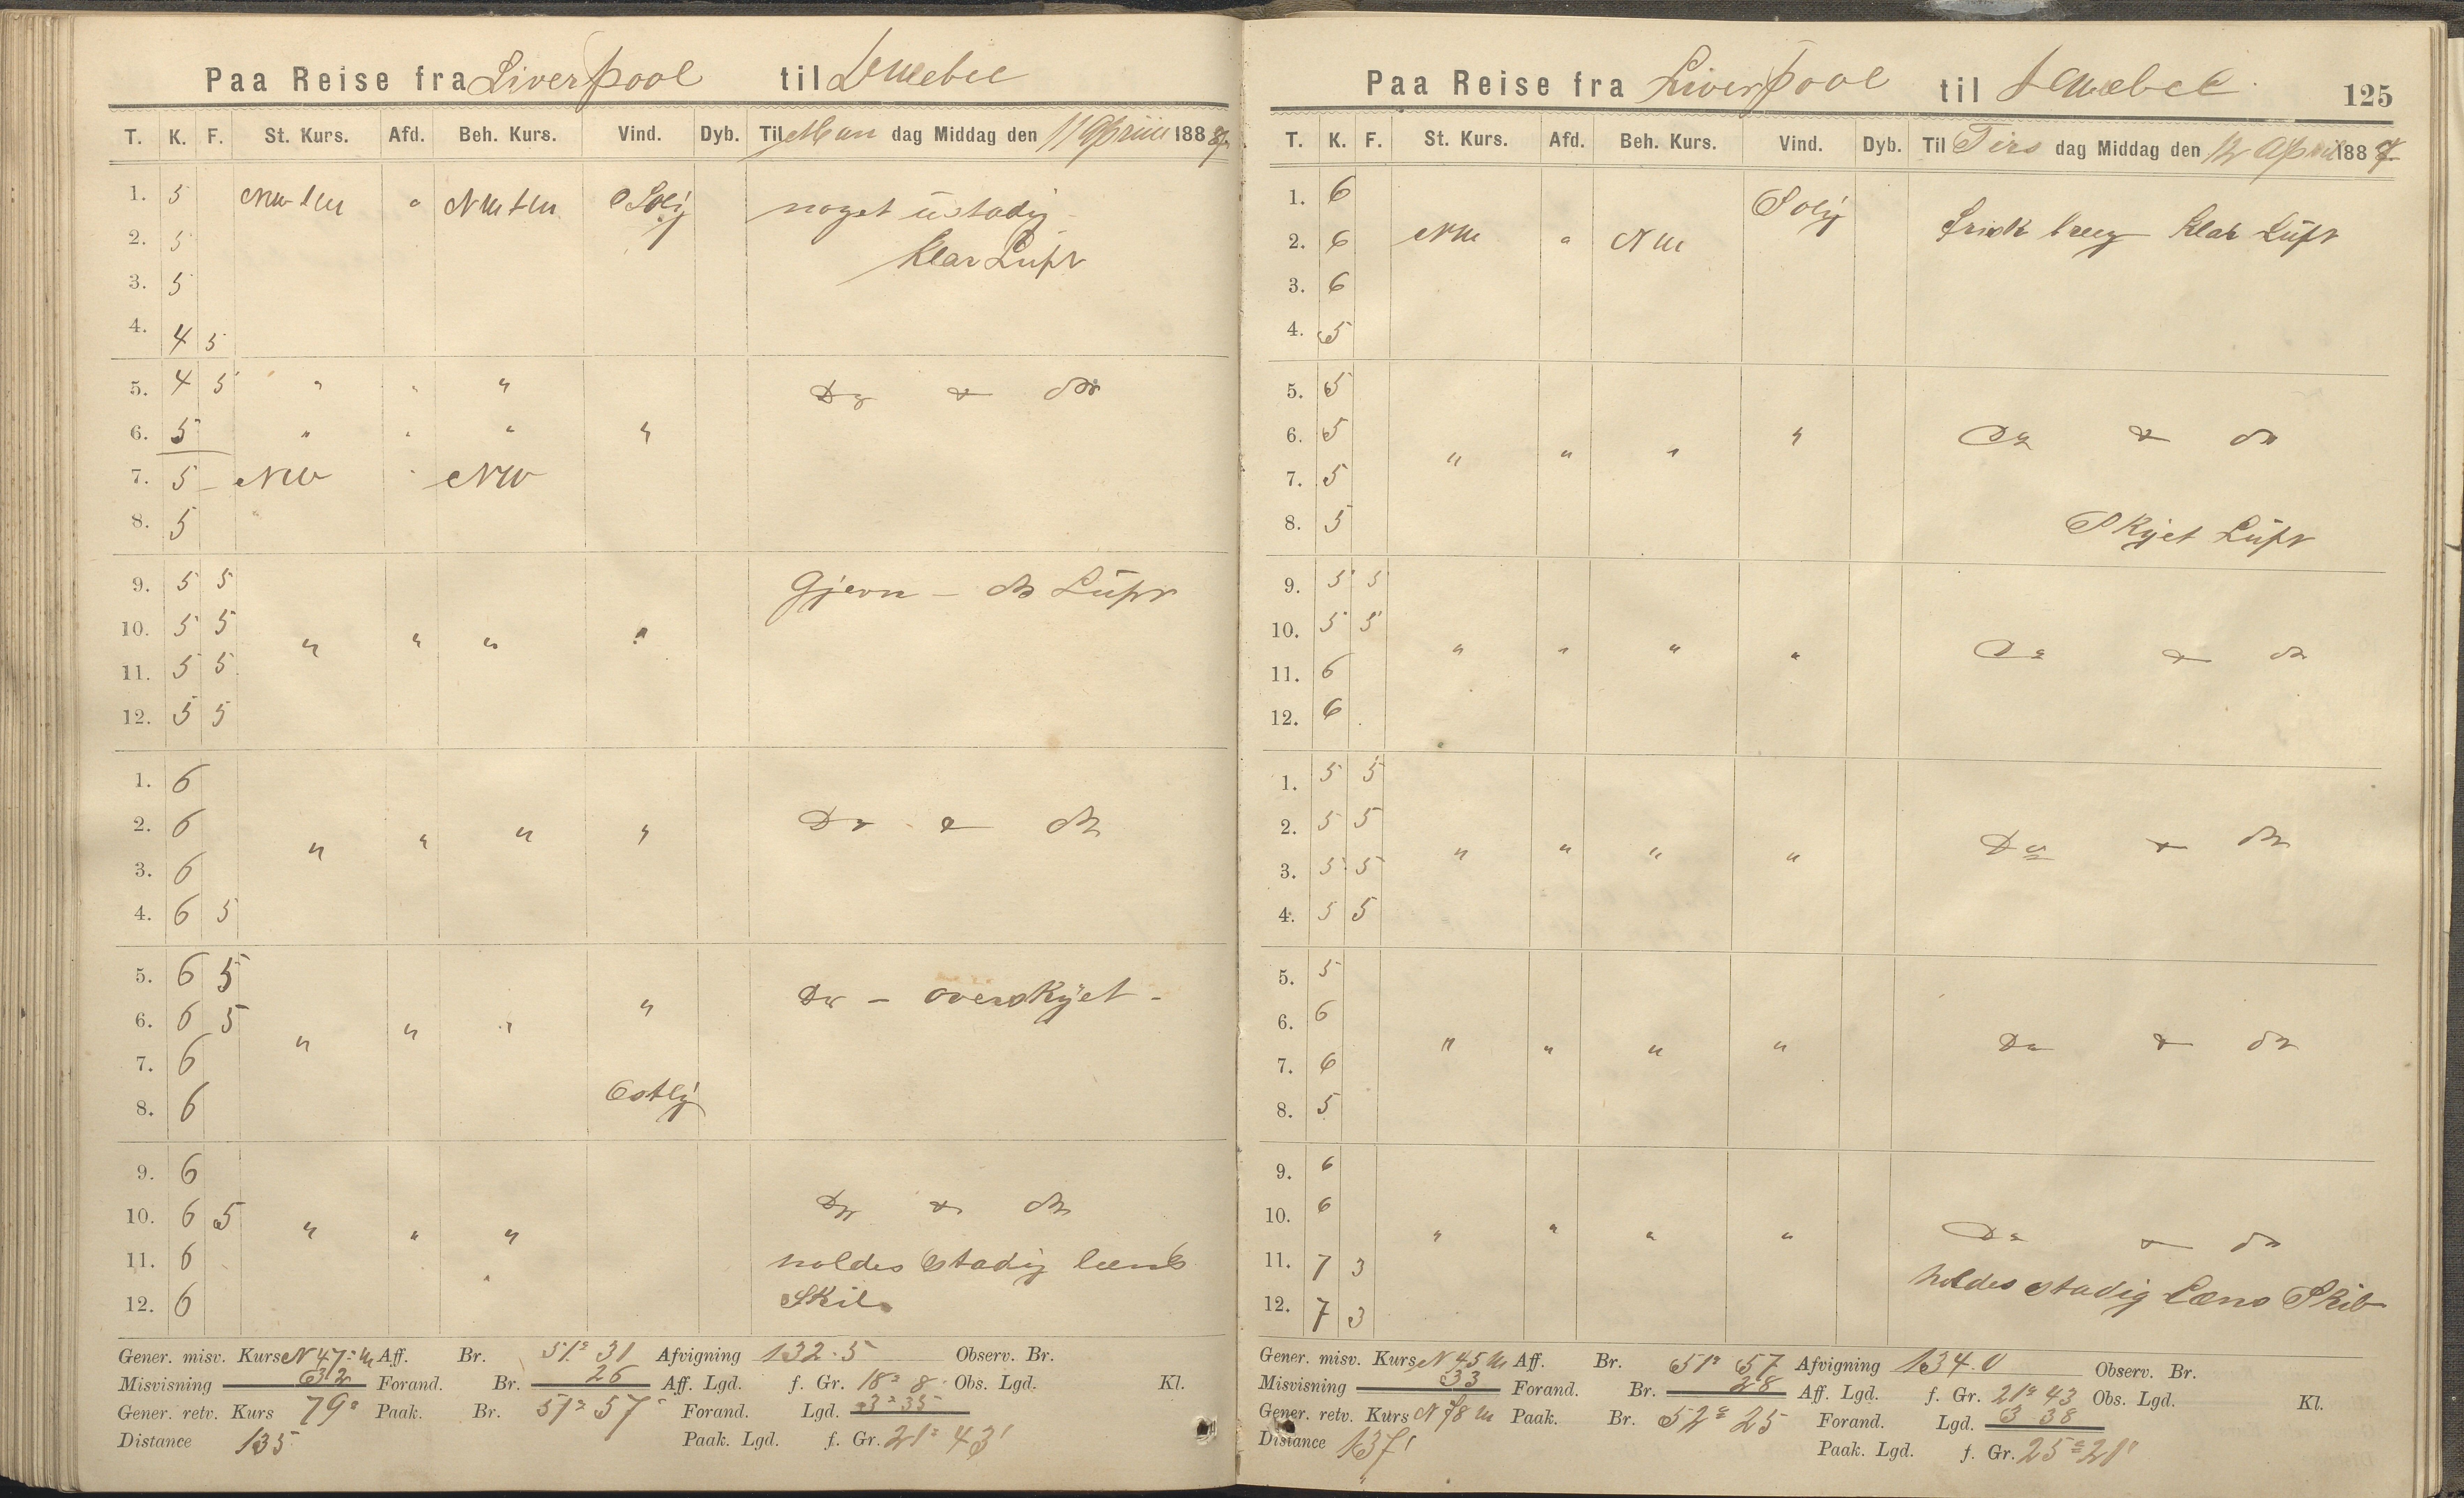 Paa Reise fra Liverpool til Quebec
T. K. F. St. Kurs. Afd. Beh. Kurs. Vind. Dyb. Til Man dag Middag den 11 April 1887
1. 5 " noget ustadig
2. 5 klar Luft
3. 5
4. 4 5
5. 4 5 " " " Do & do
6. 5 " " " "
7. 5 NW " NW
8. 5
9. 5 5 Gjevn - do Luft
10. 5 5 " " " "
11. 5 5
12. 5 5
1. 6
2. 6 " " " " Do & do
3. 6
4. 6 5
5. 6 5 " Do - overskyet -
6. 6 5 " " "
7. 6
8. 6 Ostlig
9. 6
10. 6 5 " " " Do & do
11. 6 holdes stadig læns
12. 6 Skib
Gener. misv. Kurs N 47° W Aff. Br. 51° 31 Afvigning 132.5 Observ. Br.
Misvisning 32 Forand. Br. 26 Aff. Lgd. f. Gr. 18° 8 Obs. Lgd. Kl.
Gener. retv. Kurs 79° Paak. Br. 51° 57 Forand. Lgd. 3° 35
Distance 135 Paak. Lgd. f. Gr. 21° 43'
Paa Reise fra Liverpool til Quebec 125
T. K. F. St. Kurs. Afd. Beh. Kurs. Vind. Dyb. Til Tirs dag Middag den 12 April 1887
1. 6 Solig
2. 6 NW " NW Frisk breeg klar Luft
3. 6
4. 5
5. 5
6. 5 " " " " Do & do
7. 5
8. 5 Skyet Luft
9. 5 5
10. 5 5 " " " " Do & do
11. 6
12. 6
1. 5 5
2. 5 5 " " " " Do & do
3. 5 5
4. 5 5
5. 5
6. 6 " " " " Do & do
7. 6
8. 5
9. 6
10. 6 " " " " Do & do
11. 7 3 holdes stadig Læns Skib
12. 7 3
Gener. misv. Kurs N 45 W Aff. Br. 51° 57 Afvigning 134.0 Observ. Br.
Misvisning 33 Forand. Br. 28 Aff. Lgd. f. Gr. 21° 43 Obs. Lgd. Kl.
Gener. retv. Kurs N 78 W Paak. Br. 52° 25 Forand. Lgd. 3 38
Distance 137' Paak. Lgd. f. Gr. 25° 21'